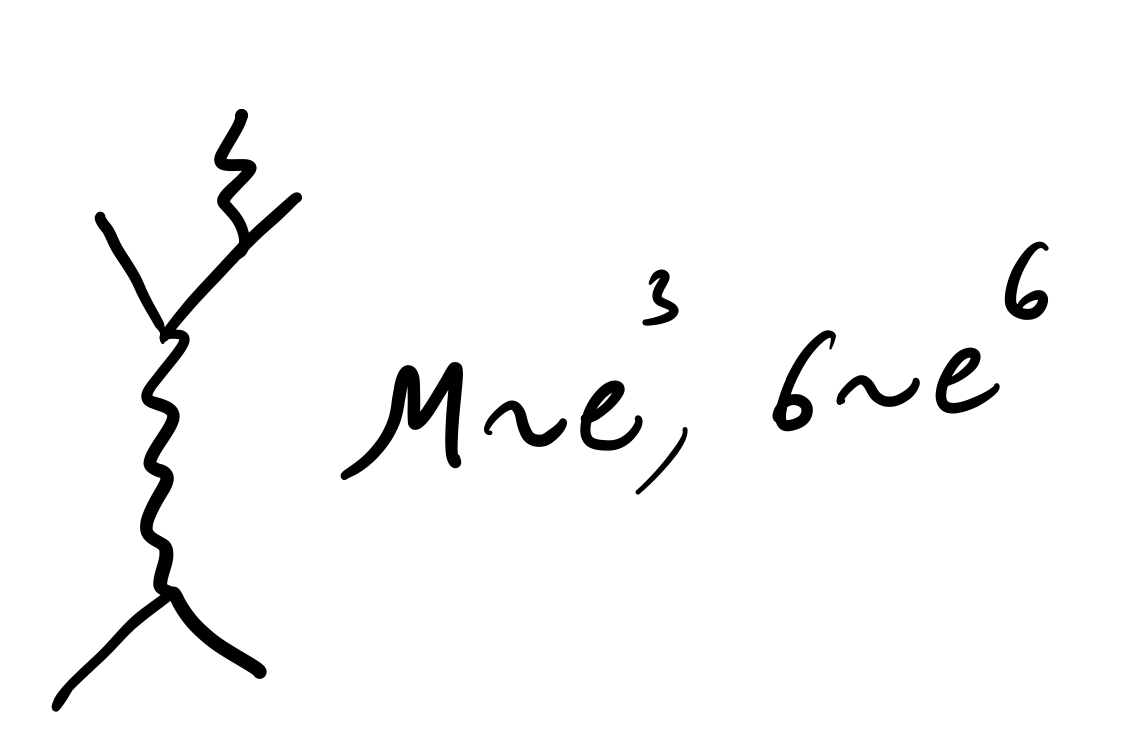 M~e³, 6~e⁶